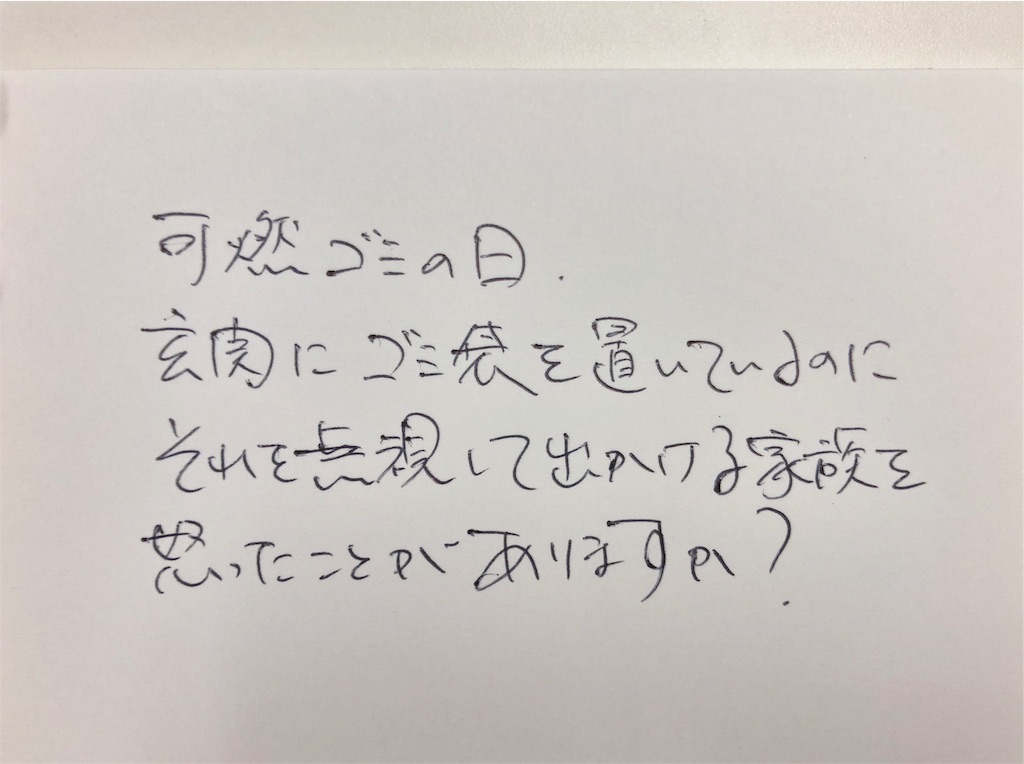 可燃ゴミの日.
玄関にゴミ袋を置いているのに
それを無視して出かける家族を
怒ったことがありますか?